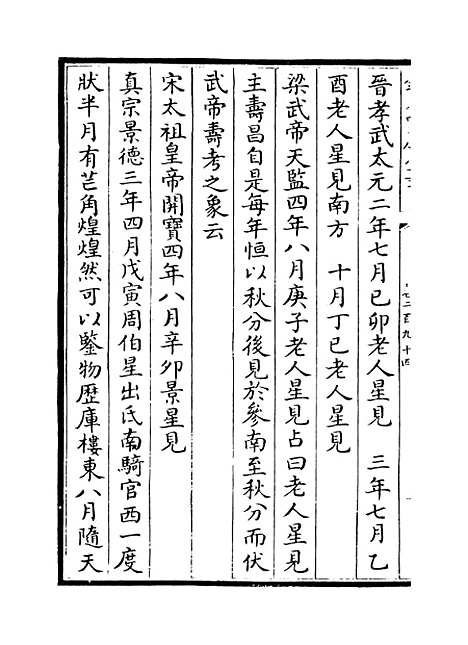 晉孝武太元二年七月已卯老人星見　三年七月乙
酉老人星見南方　十月丁已老人星見
梁武帝天監四年八月庚子老人星見占曰老人星見
主壽昌自是每年恒以秋分後見於參南至秋分而伏
武帝壽考之象云
宋太祖皇帝開寶四年八月辛卯景星見
真宗景德三年四月戊寅周伯星出氐南騎官西一度
狀半月有芒角煌煌然可以鑒物歷庫樓東八月隨天